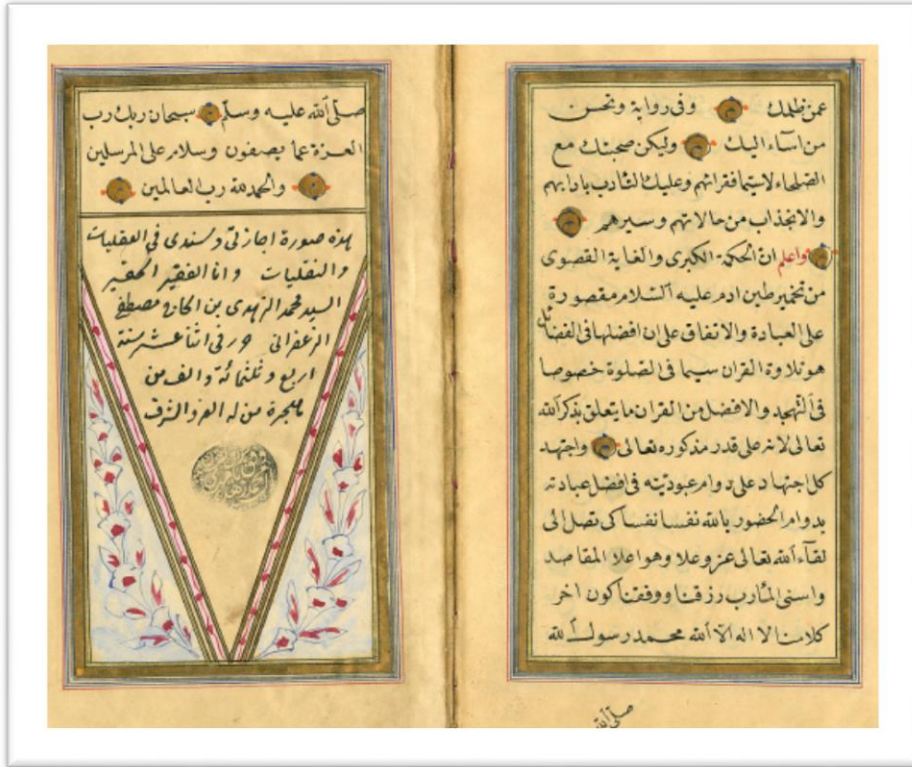 عمن ظلمك وفى رواية وتحسن
من اساء اليك وليكن صحبتك مع
الصلحاء لاسيما فقرائهم وعليك التأدب بادابهم
والانجذاب من حالاتهم وسيرهم
واعلم ان الحكمة الكبرى والغاية القصوى
من تخمير طين ادم عليه السلام مقصورة
على العبادة والاتفاق على ان افضلها فى الفضائل
هو تلاوة القران سيما فى الصلوة خصوصا
فى التهجد والافضل من القران ما يتعلق بذكر الله
تعالى لانه على قدر مذكوره تعالى واجتهد
كل اجتهاد على دوام عبوديته فى افضل عبادته
بدوام الحضور بالله نفسا نفسا كى تصل الى
لقآء الله تعالى عز وعلا وهو اعلا المقاصد
واسنى المأرب رزقنا ووفقنا كون اخر
كلامنا لا اله الا الله محمد رسول الله
صلى الله
صلى الله عليه وسلم سبحان ربك رب
العزة عما يصفون وسلام على المرسلين
والحمد لله رب العالمين
هذه صورة اجازتى وسندى فى العقليات
والنقليات وانا الفقير الحقير
السيد محمد الزهدى بن الحاج مصطفى
الزعفرانى حرر فى اثنا عشر سنة
اربع وثلثمائة والف من
هجرة من له العز والشرف